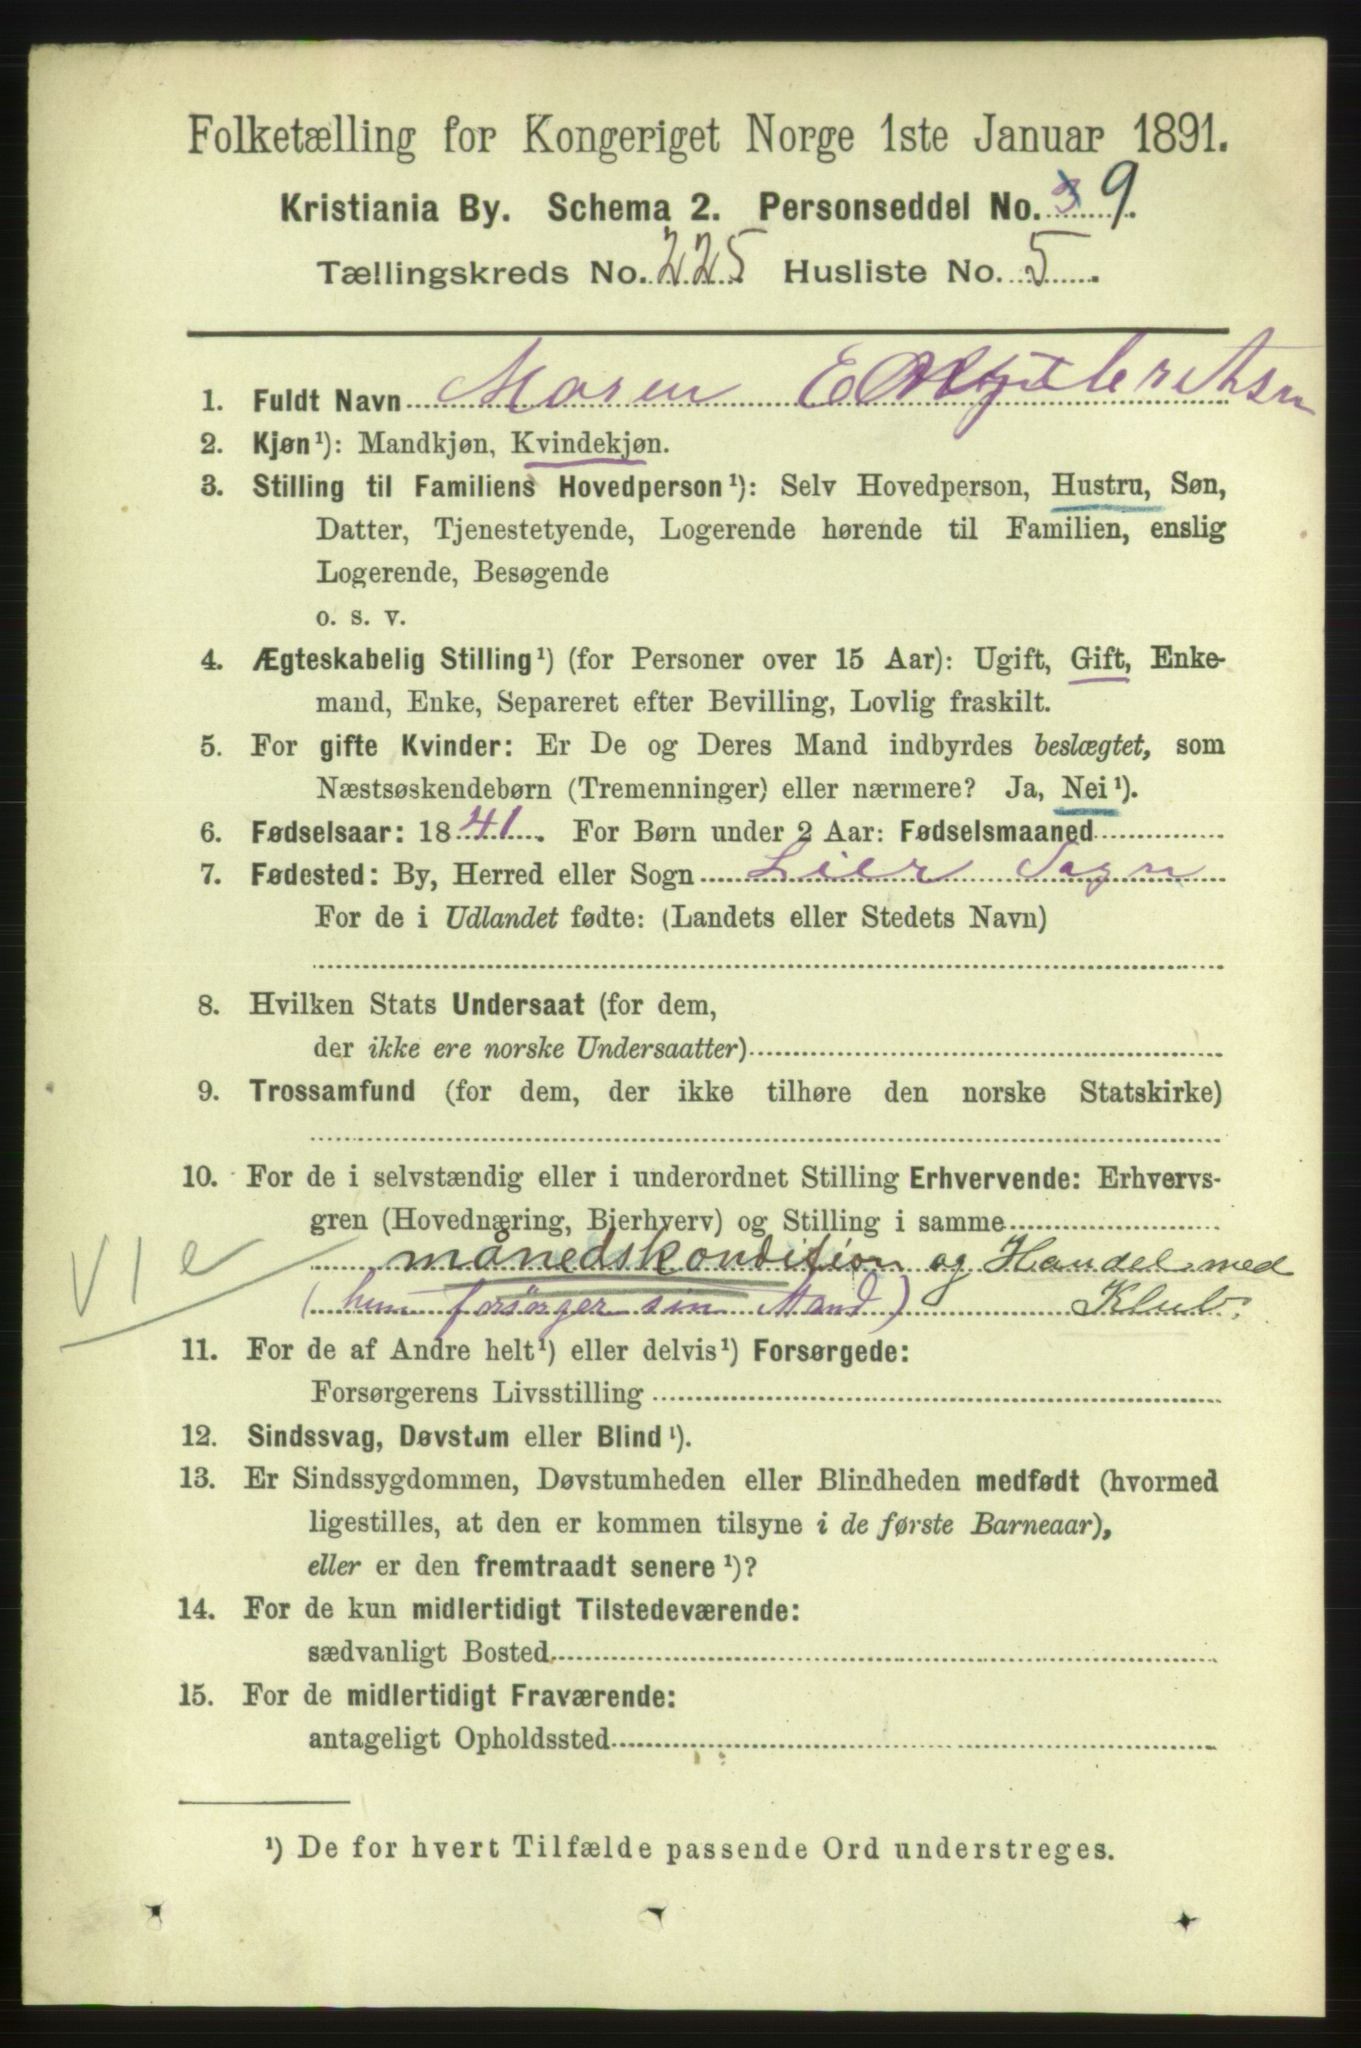 Folketælling for Kongeriget Norge 1ste Januar 1891.
Kristiania By. Schema 2. Personseddel No. 3 9.
Tællingskreds No. 225 Husliste No. 5.
1. Fuldt Navn Maren
2. Kjøn¹): Mandkjøn, Kvindekjøn.
3. Stilling til Familiens Hovedperson¹): Selv Hovedperson, Hustru, Søn,
Datter, Tjenestetyende, Logerende hørende til Familien, enslig
Logerende, Besøgende
o. s. v.
4. Ægteskabelig Stilling¹) (for Personer over 15 Aar): Ugift, Gift, Enke-
mand, Enke, Separeret efter Bevilling, Lovlig fraskilt.
5. For gifte Kvinder: Er De og Deres Mand indbyrdes beslægtet, som
Næstsøskendebørn (Tremenninger) eller nærmere? Ja, Nei¹).
6. Fødselsaar: 1841. For Børn under 2 Aar: Fødselsmaaned
7. Fødested: By, Herred eller Sogn Lier Sogn
For de i Udlandet fødte: (Landets eller Stedets Navn)
8. Hvilken Stats Undersaat (for dem,
der ikke ere norske Undersaatter)
9. Trossamfund (for dem, der ikke tilhøre den norske Statskirke)
10. For de i selvstændig eller i underordnet Stilling Erhvervende: Erhvervs-
gren (Hovednæring, Bierhverv) og Stilling i samme
VIe månedskondition og Handel med
(hun forsørger sin Mand) Klub.
11. For de af Andre helt¹) eller delvis¹) Forsørgede:
Forsørgerens Livsstilling
12. Sindssvag, Døvstum eller Blind¹).
13. Er Sindssygdommen, Døvstumheden eller Blindheden medfødt (hvormed
ligestilles, at den er kommen tilsyne i de første Barneaar),
eller er den fremtraadt senere¹)?
14. For de kun midlertidigt Tilstedeværende:
sædvanligt Bosted
15. For de midlertidigt Fraværende:
antageligt Opholdssted
¹) De for hvert Tilfælde passende Ord understreges.